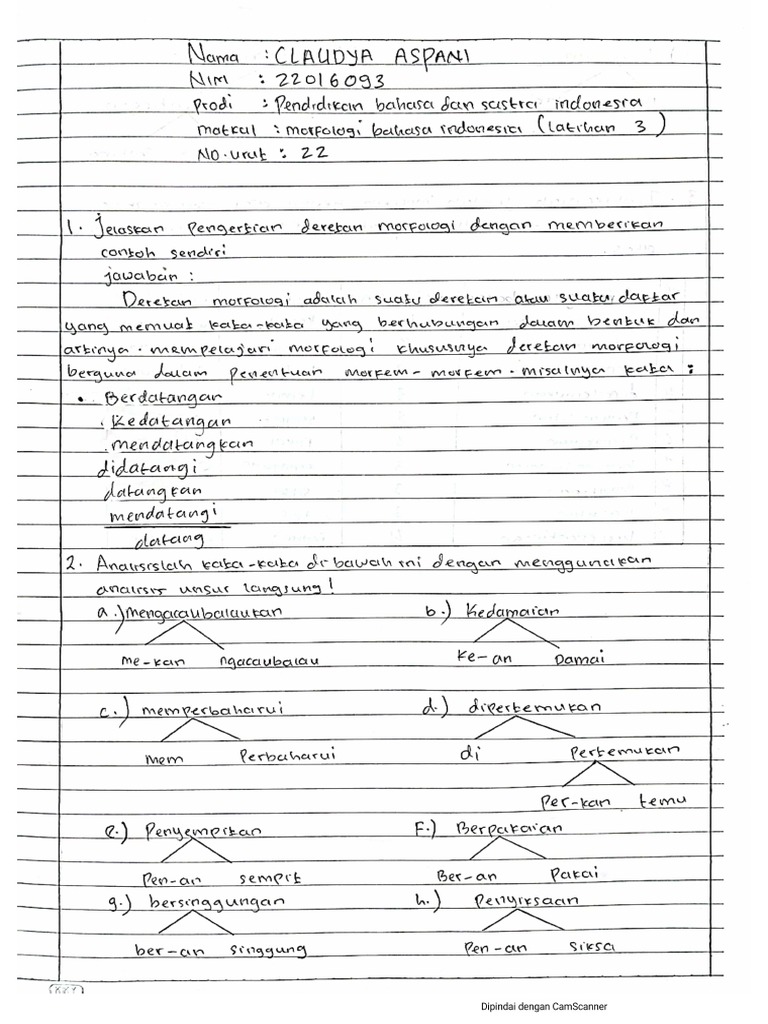 Nama : CLAUDYA ASPANI
NIM : 22016093
Prodi : Pendidikan bahasa dan sastra indonesia
matkul : morfologi bahasa indonesia (latihan 3)
No.urut : 22
1. Jelaskan Pengertian deretan morfologi dengan memberikan
contoh sendiri
jawaban :
Deretan morfologi adalah suatu deretan atau suatu daftar
yang memuat kata-kata yang berhubungan dalam bentuk dan
artinya. mempelajari morfologi khususnya deretan morfologi
berguna dalam penentuan morfem-morfem. misalnya kata :
• Berdatangan
. Kedatangan
. mendatangkan
didatangi
datangkan
mendatangi
datang
2. Analisislah kata-kata di bawah ini dengan menggunakan
analisis unsur langsung!
a.) mengacaubalaukan b.) Kedamaian
me-kan ngacaubalau ke-an Damai
c.) memperbaharui d.) dipertemukan
mem Perbaharui di Pertemukan
Per-kan temu
e.) Penyempitan F.) Berpakaian
Pen-an sempit Ber-an Pakai
g.) bersinggungan h.) Penyiksaan
ber-an singgung Pen-an siksa
Dipindai dengan CamScanner